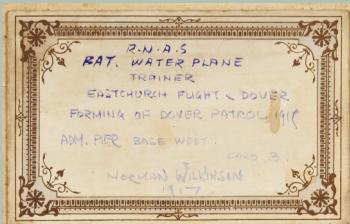 R.N.A.S
BAT. WATER PLANE
TRAINER
EASTCHURCH FLIGHT & DOVER
FORMING OF DOVER PATROL 191
ADM. PIER BASE WEST.
CARD 3.
NORMAN WILKINSON
1917